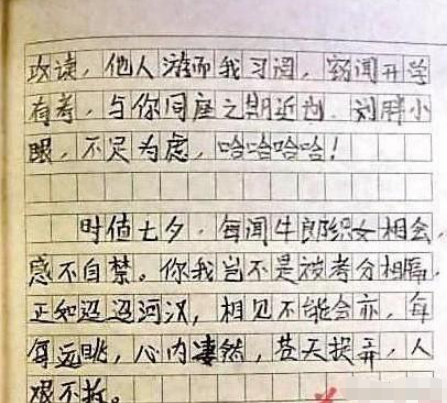 攻读，他人游而我习得，窃闻开学
有考，与你同座之期近也．刘胖小
眼，不足为虑，哈哈哈哈！
时值七夕，每闻牛郎织女相会，
感不自禁。你我岂不是被考分相隔，
正如迢迢河汉，相见不能会亦，每
每远眺，心内凄然，苍天捉弄，人
艰不拆。